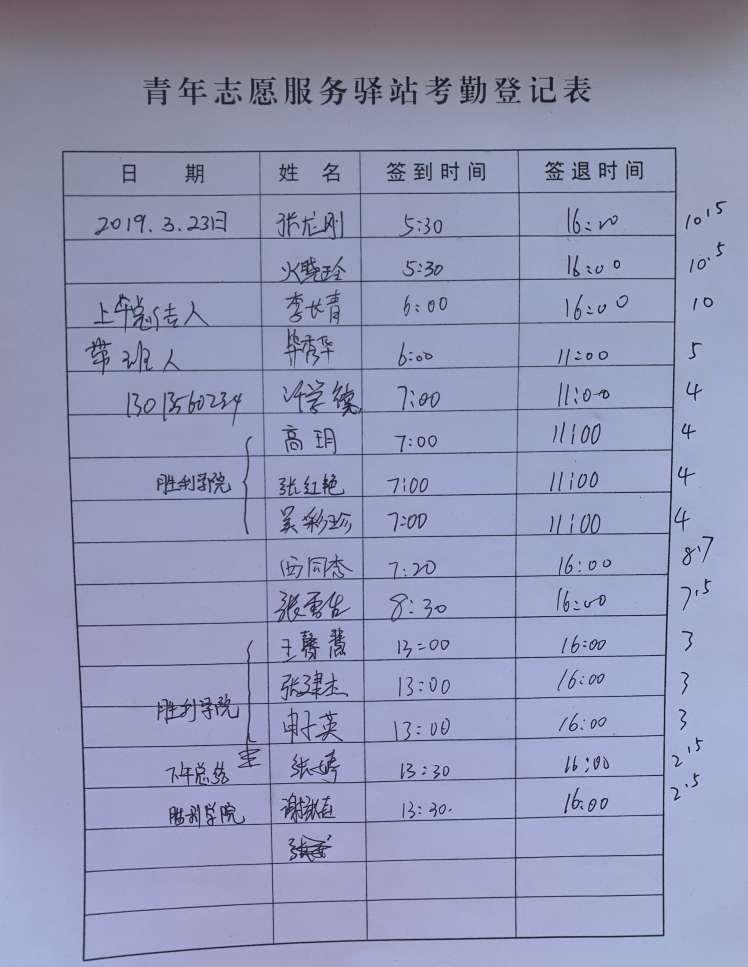 青年志愿服务驿站考勤登记表
日 期 姓 名 签到时间 签退时间
2019.3.23日 张龙刚 5:30 16:00 10.5
火晓玲 5:30 16:00 10.5
上午 人 李长青 6:00 16:00 10
带班人 毕秀华 6:00 11:00 5
13013560234 许学德 7:00 11:00 4
高玥 7:00 11:00 4
胜利学院 张红艳 7:00 11:00 4
吴彩珍 7:00 11:00 4
西同香 7:20 16:00 8.7
张雪 8:30 16:00 7.5
王馨 13:00 16:00 3
胜利学院 张建杰 13:00 16:00 3
申子英 13:00 16:00 3
下午总结 张婷 13:30 16:00 2.5
胜利学院 谢 13:30. 16:00 2.5